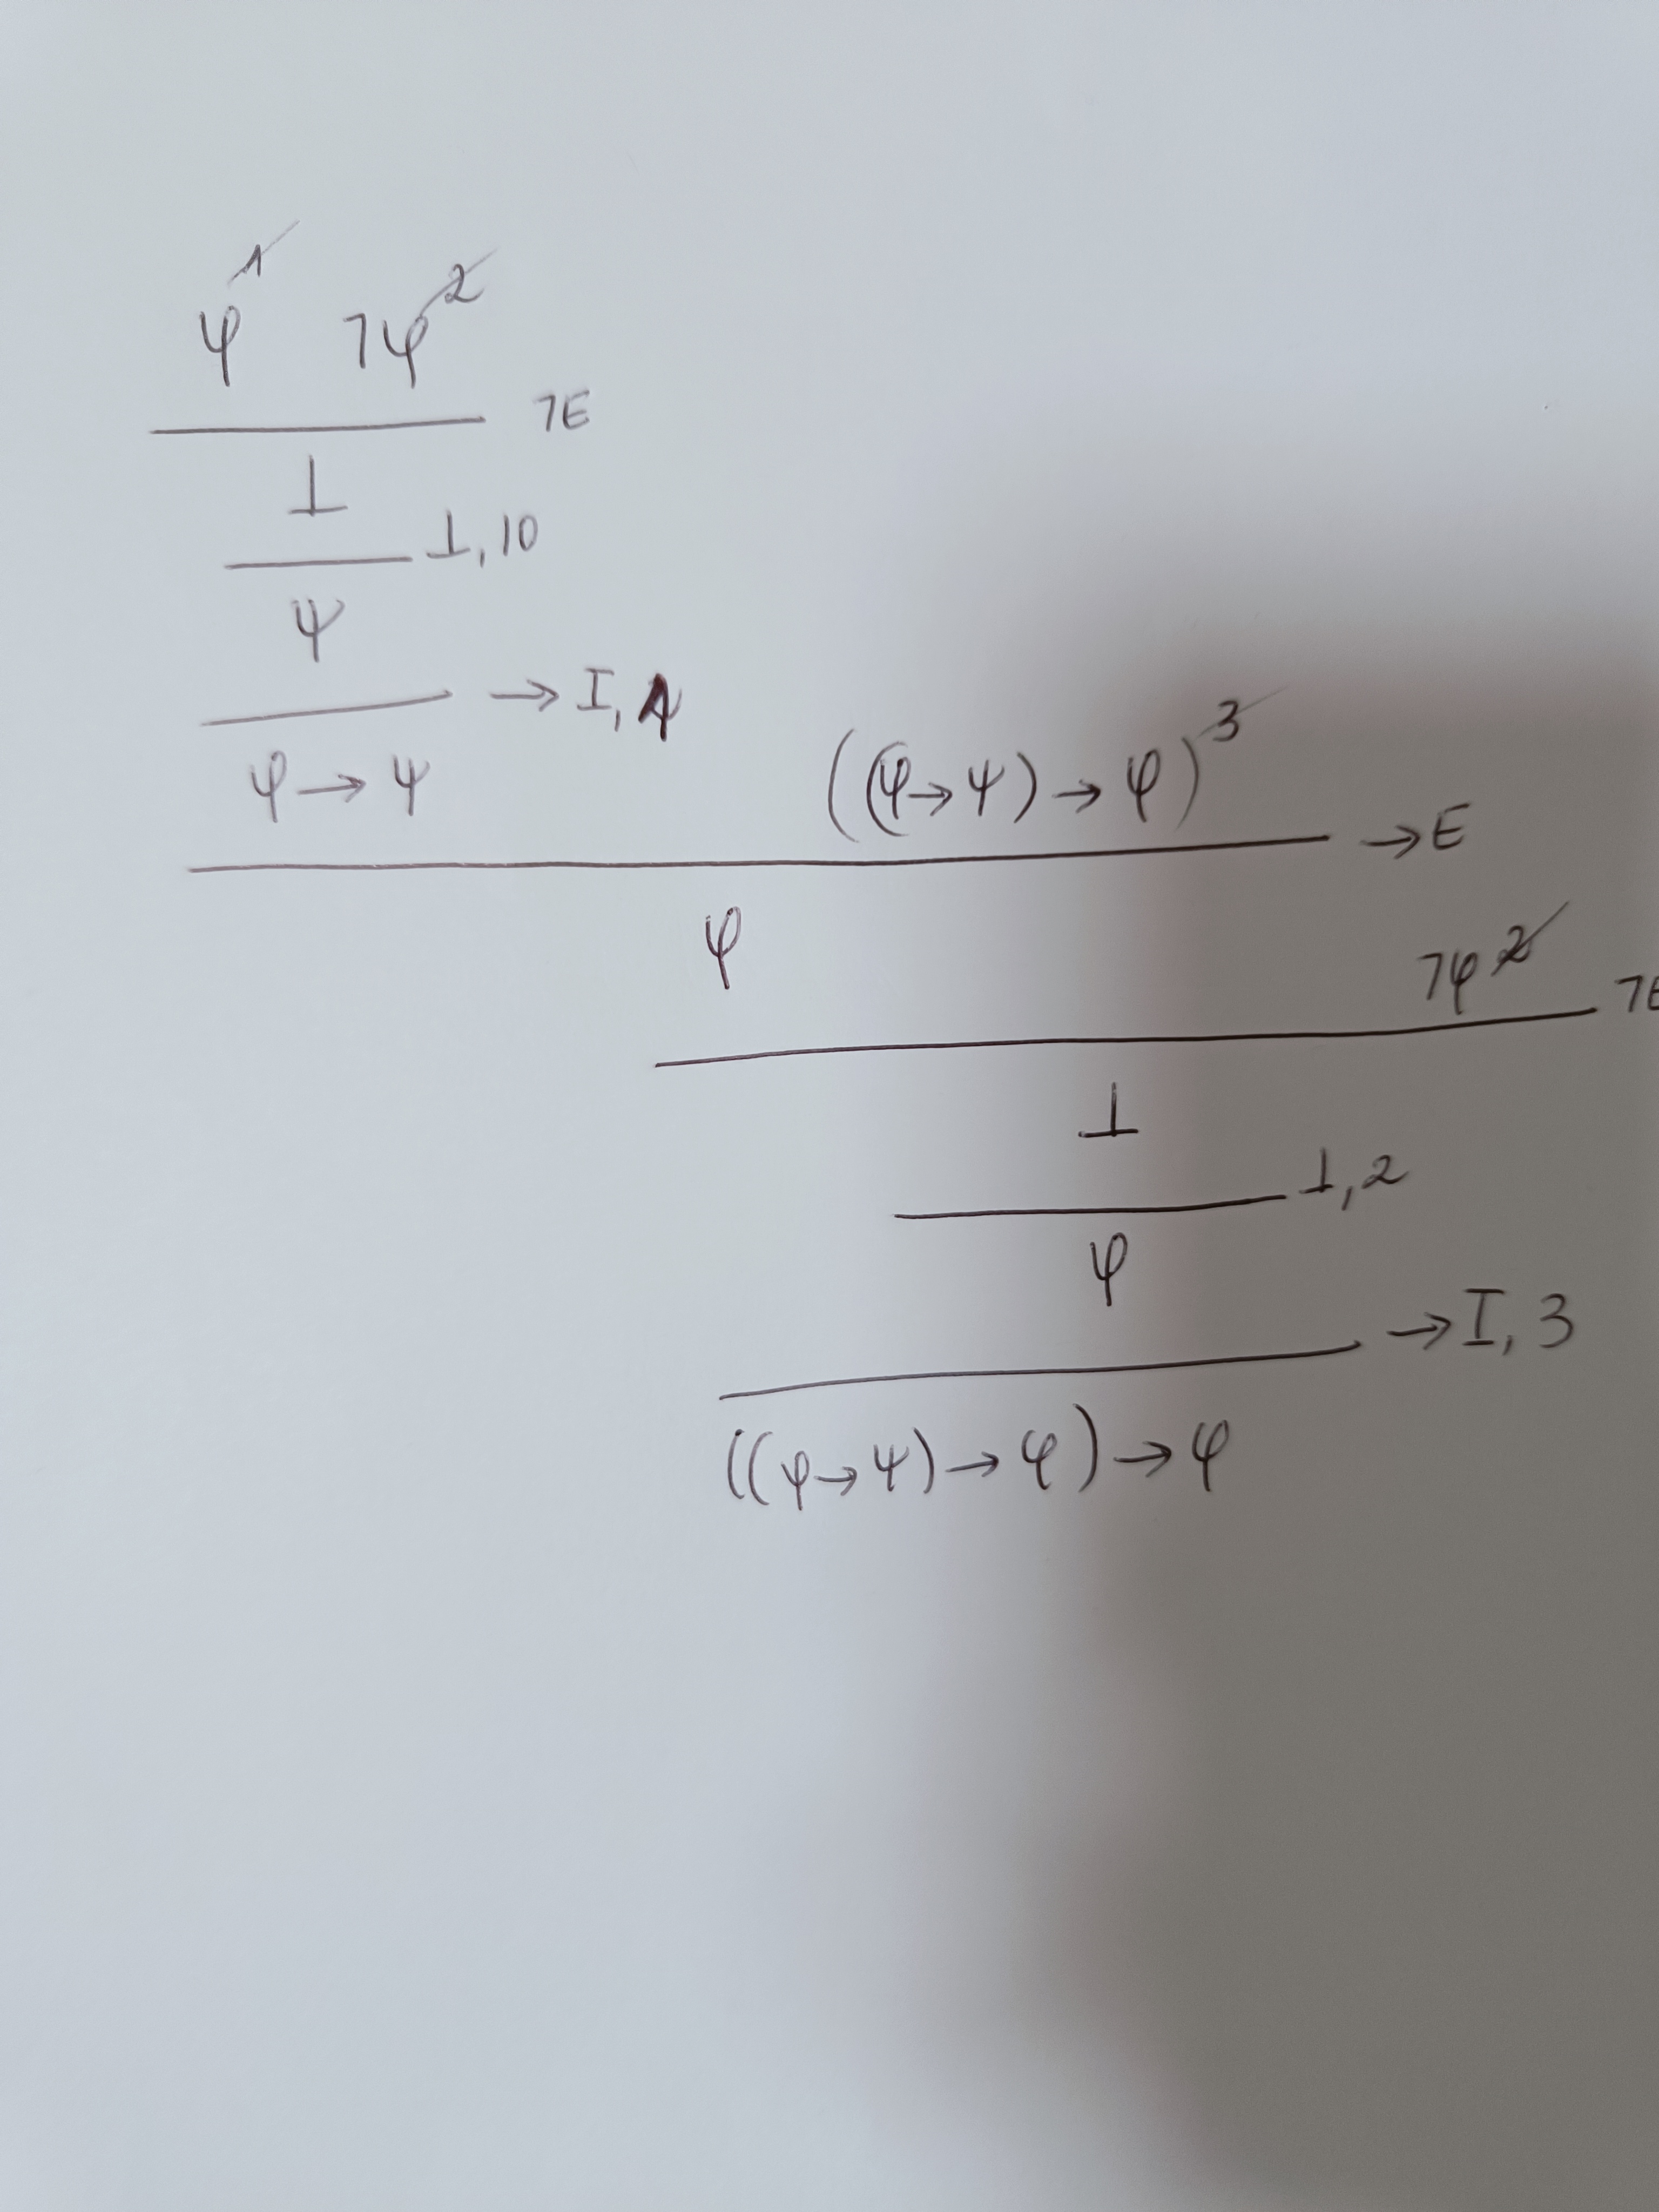 φ¹ ¬φ²
¬E
⊥
⊥, 10
ψ
→I, 1
φ→ψ ((φ→ψ)→φ)³
→E
φ ¬φ²
¬E
⊥
⊥, 2
φ
→I, 3
((φ→ψ)→φ)→φ